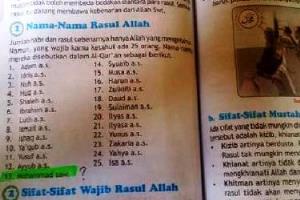 tidak boleh membeda-bedakan diantara para rasul
datang membawa kebenaran dari Allah Swt.
1 Nama-Nama Rasul Allah
Jumlah nabi dan rasul sebenarnya hanya Allah yang mengetahui
Namun, yang wajib kamu ketahui ada 25 orang. Nama-nama
mereka disebutkan dalam Al-Qur'an sebagai berikut.
1. Adam a.s.
2. Idris a.s.
3. Nuh a.s.
4. Hud a.s.
5. Shaleh a.s.
6. Ibrahim a.s.
7. Luth a.s.
8. Ismail a.s.
9. Ishaq a.s.
10. Ya'qub a.s.
11. Yusuf a.s.
12. Ayyub a.s.
13. Muhammad saw. ?
Syu'aib a.s.
15. Musa a.s.
16. Harun a.s.
17. Zulkifli a.s.
18. Daud a.s.
19. Sulaiman a.s.
20. Ilyas a.s.
21. Ilyasa a.s.
22. Yunus a.s.
23. Zakaria a.s.
24. Yahya a.s.
25. Isa a.s.
2 Sifat-Sifat Wajib Rasul Allah
b. Sifat-Sifat Mustah
Sifat yang tidak mungkin
tersebut adalah
Kizib artinya berdusta
Rasul tak mungkin
Khianat artinya
mengkhianati Allah dan
Khitman artinya meny